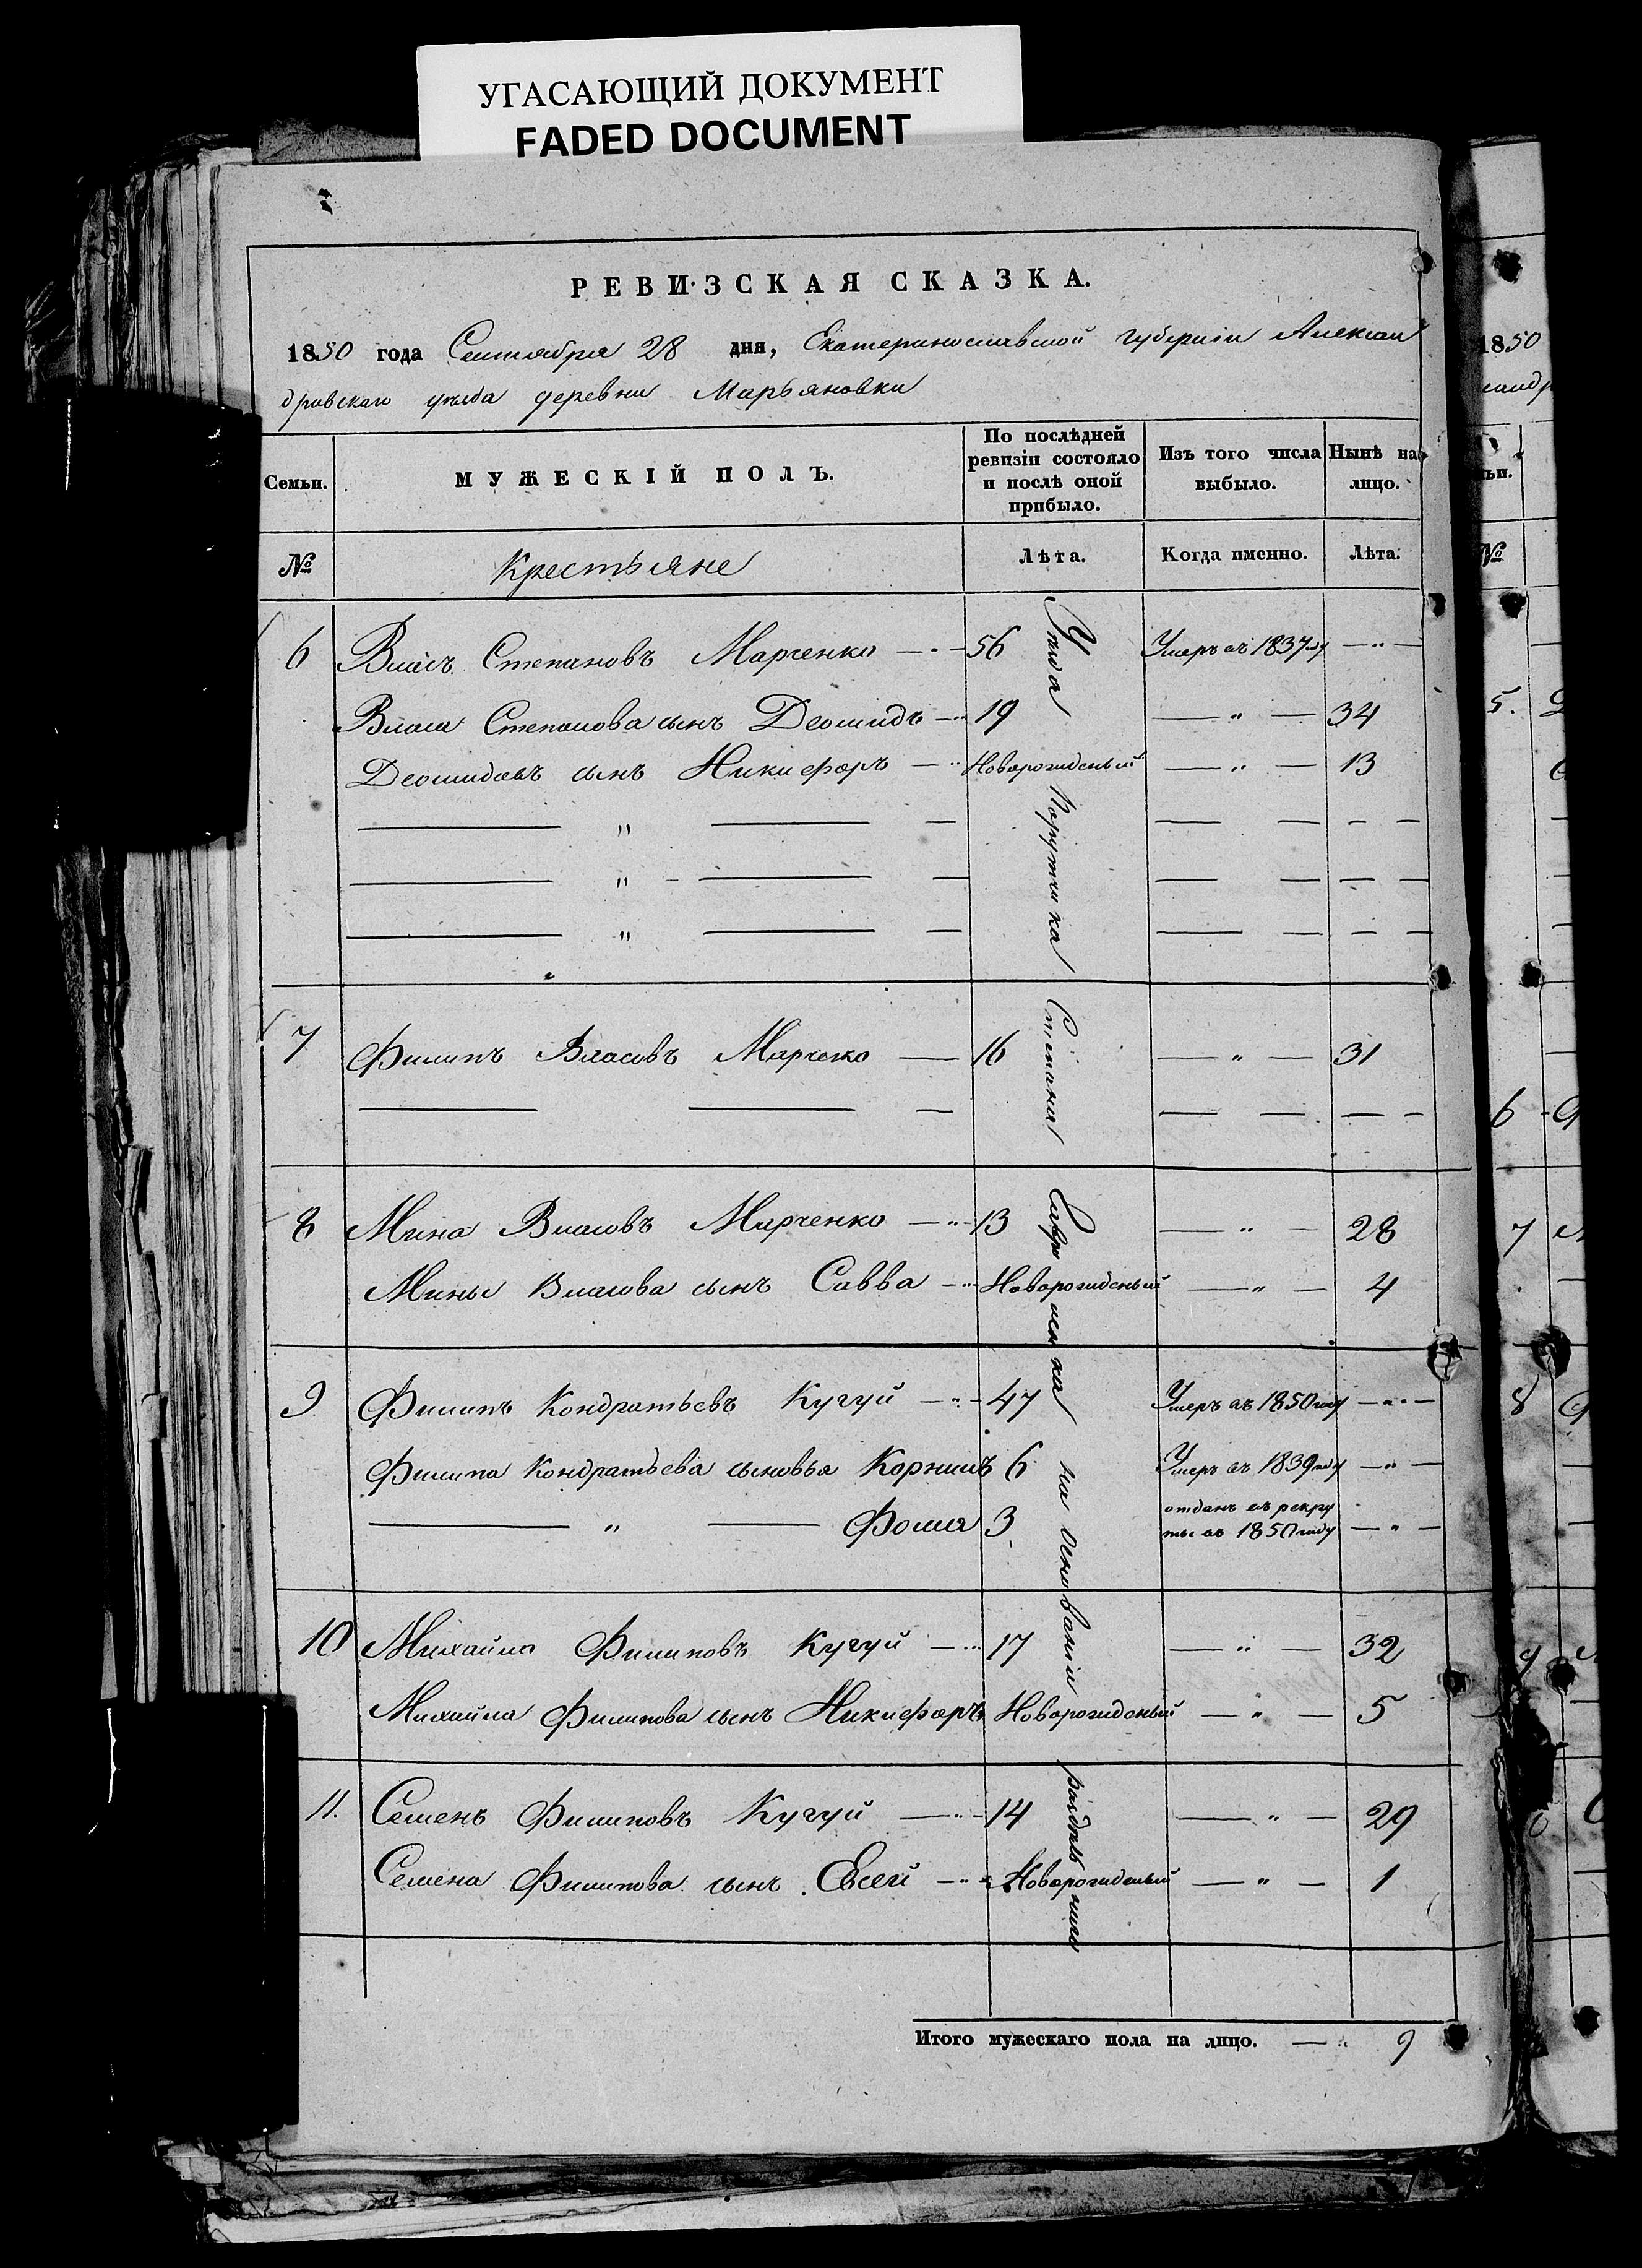 УГАСАЮЩИЙ ДОКУМЕНТ
FADED DOCUMENT
РЕВИЗСКАЯ СКАЗКА.
1850 года Сентября 28 дня, Екатеринославской губернии Алексан
дровскаго уѣзда деревни Марьяновки
Семьи. МУЖЕСКІЙ ПОЛЪ. По послѣдней ревизіи состояло и послѣ оной прибыло. Изъ того числа выбыло. Нынѣ на лицо.
№ Крестьяне Лѣта. Когда именно. Лѣта.
6 Власъ Степановъ Марченко — " — 56 Умеръ въ 1837 году — " —
Власа Степанова сынъ Деомидъ — " 19 — " — 34
Деомидовъ сынъ Никифоръ — " Новорожденый — " — 13
— " — —
— " — —
— " — —
7 Филипъ Власовъ Марченко — 16 — " — 31
8 Мина Власовъ Марченко — " — 13 — " — 28
Мины Власова сынъ Савва — " Новорожденый — " — 4
9 Филипъ Кондратьевъ Кугуй — " — 47 Умеръ въ 1850 году — " —
Филипа Кондратьева сыновья Корнилъ 6 Умеръ въ 1839 году — " —
— " — Фома 3 отданъ въ рекру
ты въ 1850 году — " —
10 Михайла Филиповъ Кугуй — " 17 — " — 32
Михайла Филипова сынъ Никифоръ Новорожденый — " — 5
11. Семенъ Филиповъ Кугуй — " — 14 — " — 29
Семена Филипова сынъ Евсей — " Новорожденый — " — 1
Уѣзда Поручика Степана на основаніи
Итого мужескаго пола на лицо. — " 9
1850
№
5.
6
7
8